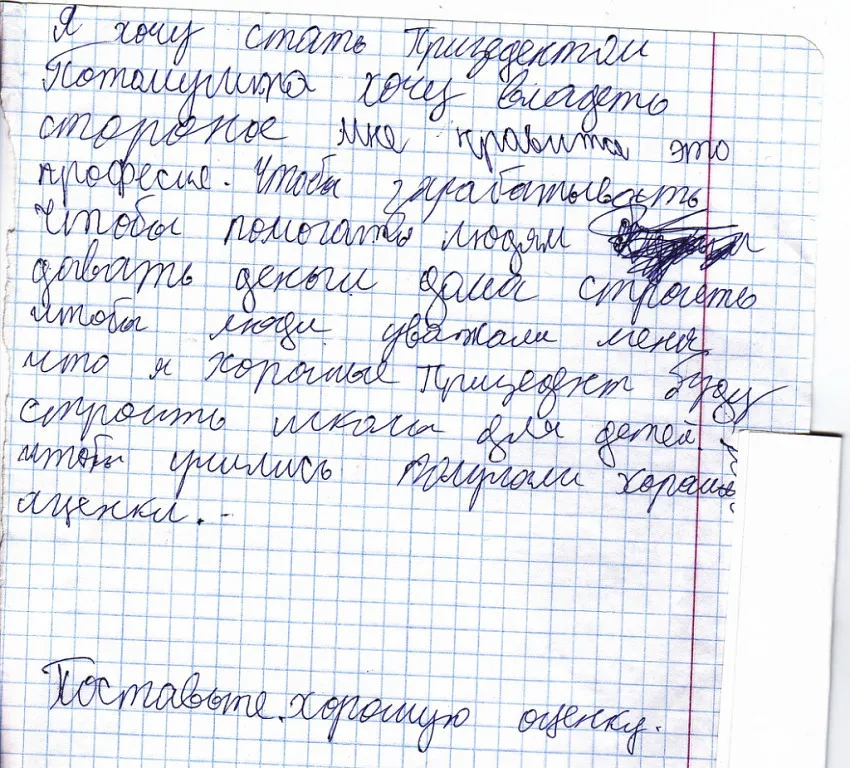 Я хочу стать Призедентом
Потомушта хочу владеть
стороное мне нравитса это
професие. Чтобы зарабатывать
Чтобы помогать людям
давать деньги дома строить
чтобы люди уважали меня
что я хороший Призедент буду
строить школы для детей
чтобы учились получали хорошие
аценки.-
Поставьте.хорошую оценку.